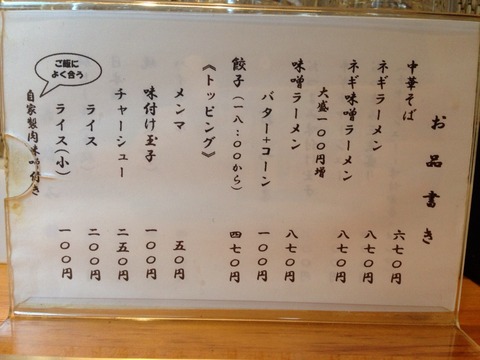 お品書き
中華そば 六七〇円
ネギラーメン 八七〇円
ネギ味噌ラーメン 八七〇円
大盛一〇〇円増
味噌ラーメン 八七〇円
バター+コーン 一〇〇円
餃子(一八:〇〇から) 四七〇円
《トッピング》
メンマ 五〇円
味付け玉子 一〇〇円
チャーシュー 二五〇円
ライス 二〇〇円
ライス(小) 一〇〇円
自家製肉味噌付き
ご飯に
よく合う